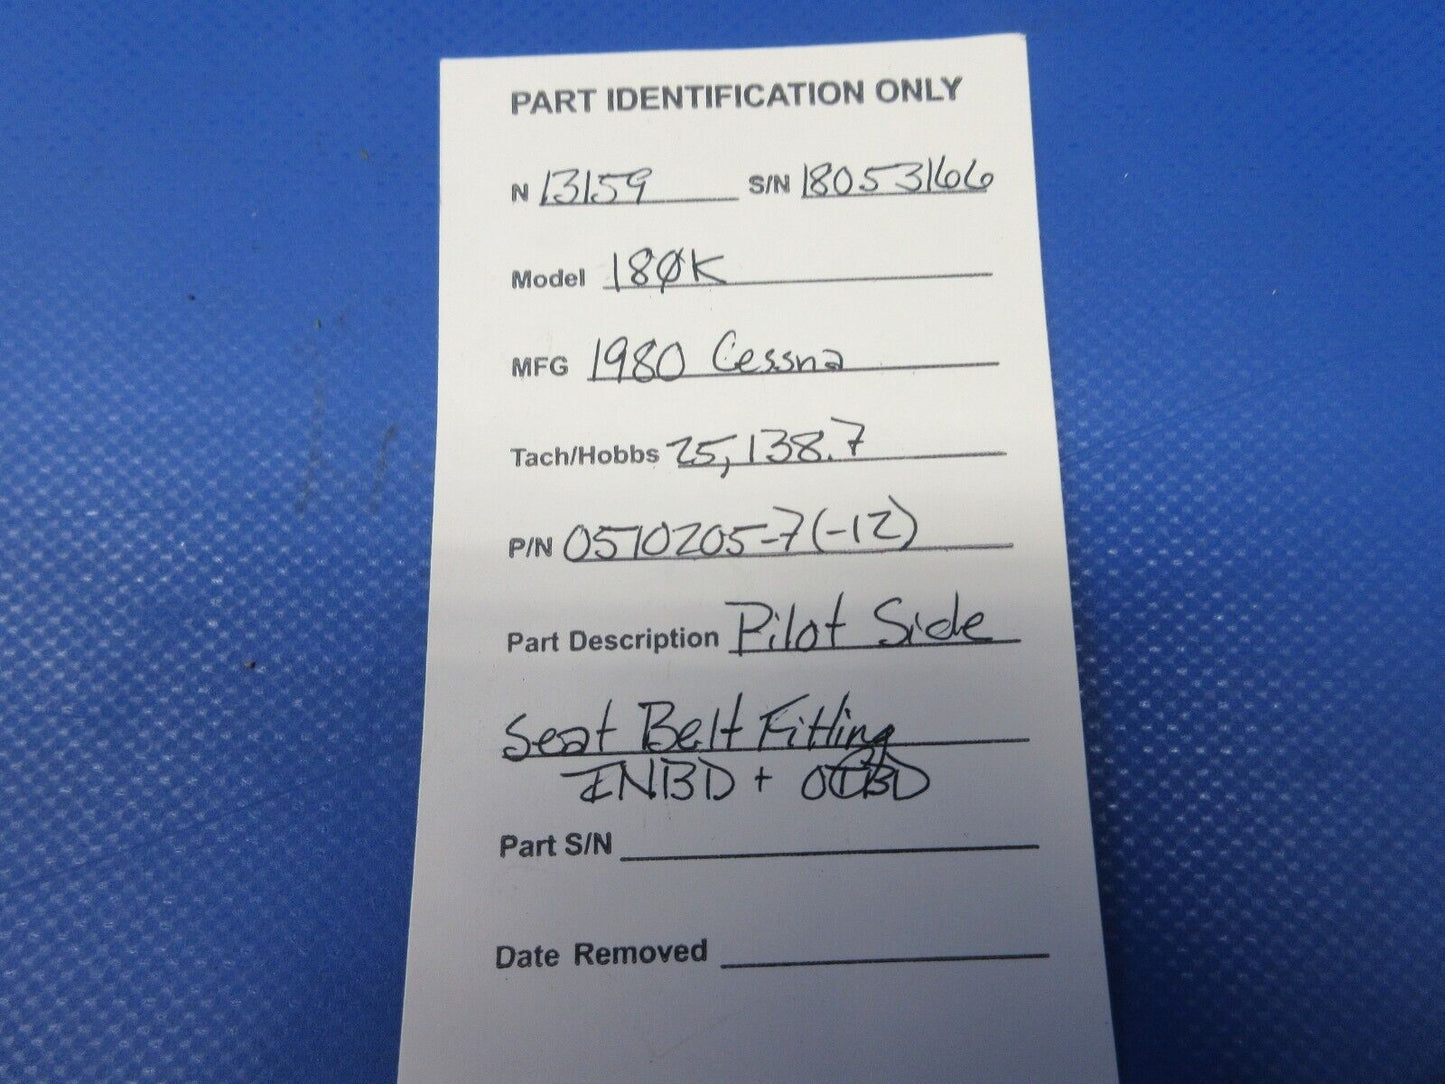 PART IDENTIFICATION ONLY
N 13159 S/N 18053166
Model 180K
MFG 1980 Cessna
Tach/Hobbs 25,138.7
P/N 0510205-7(-12)
Part Description Pilot Side
Seat Belt Fitting
INBD + OTBD
Part S/N
Date Removed